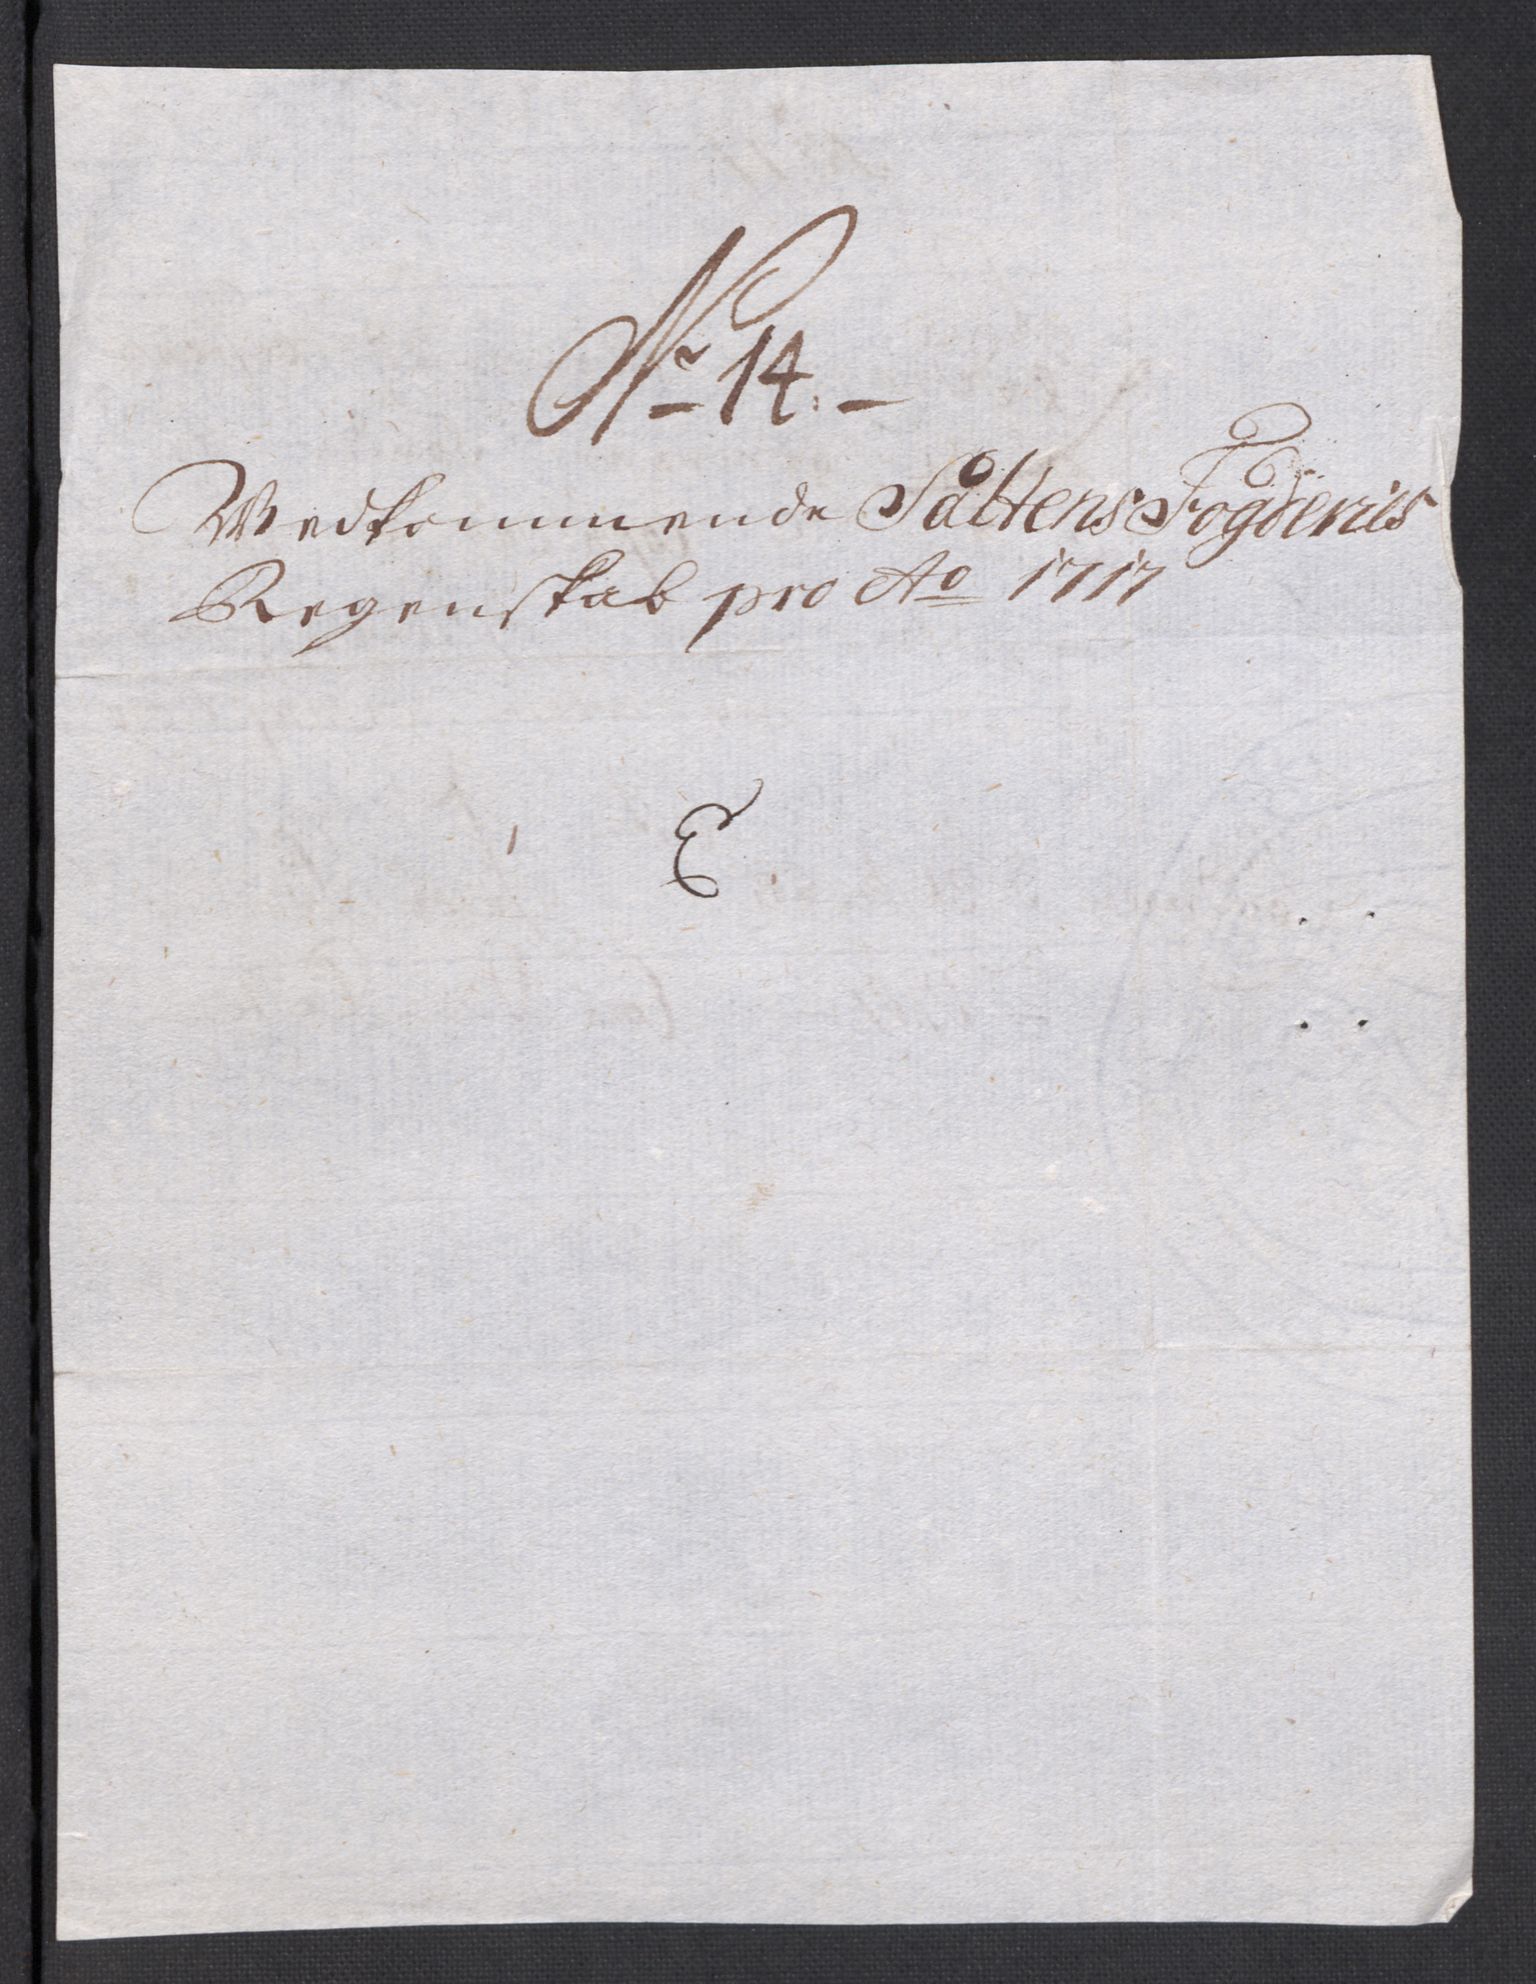 No 14.
Wedkommende Saltens Fogderies
Regenskab pro Ao 1717
E